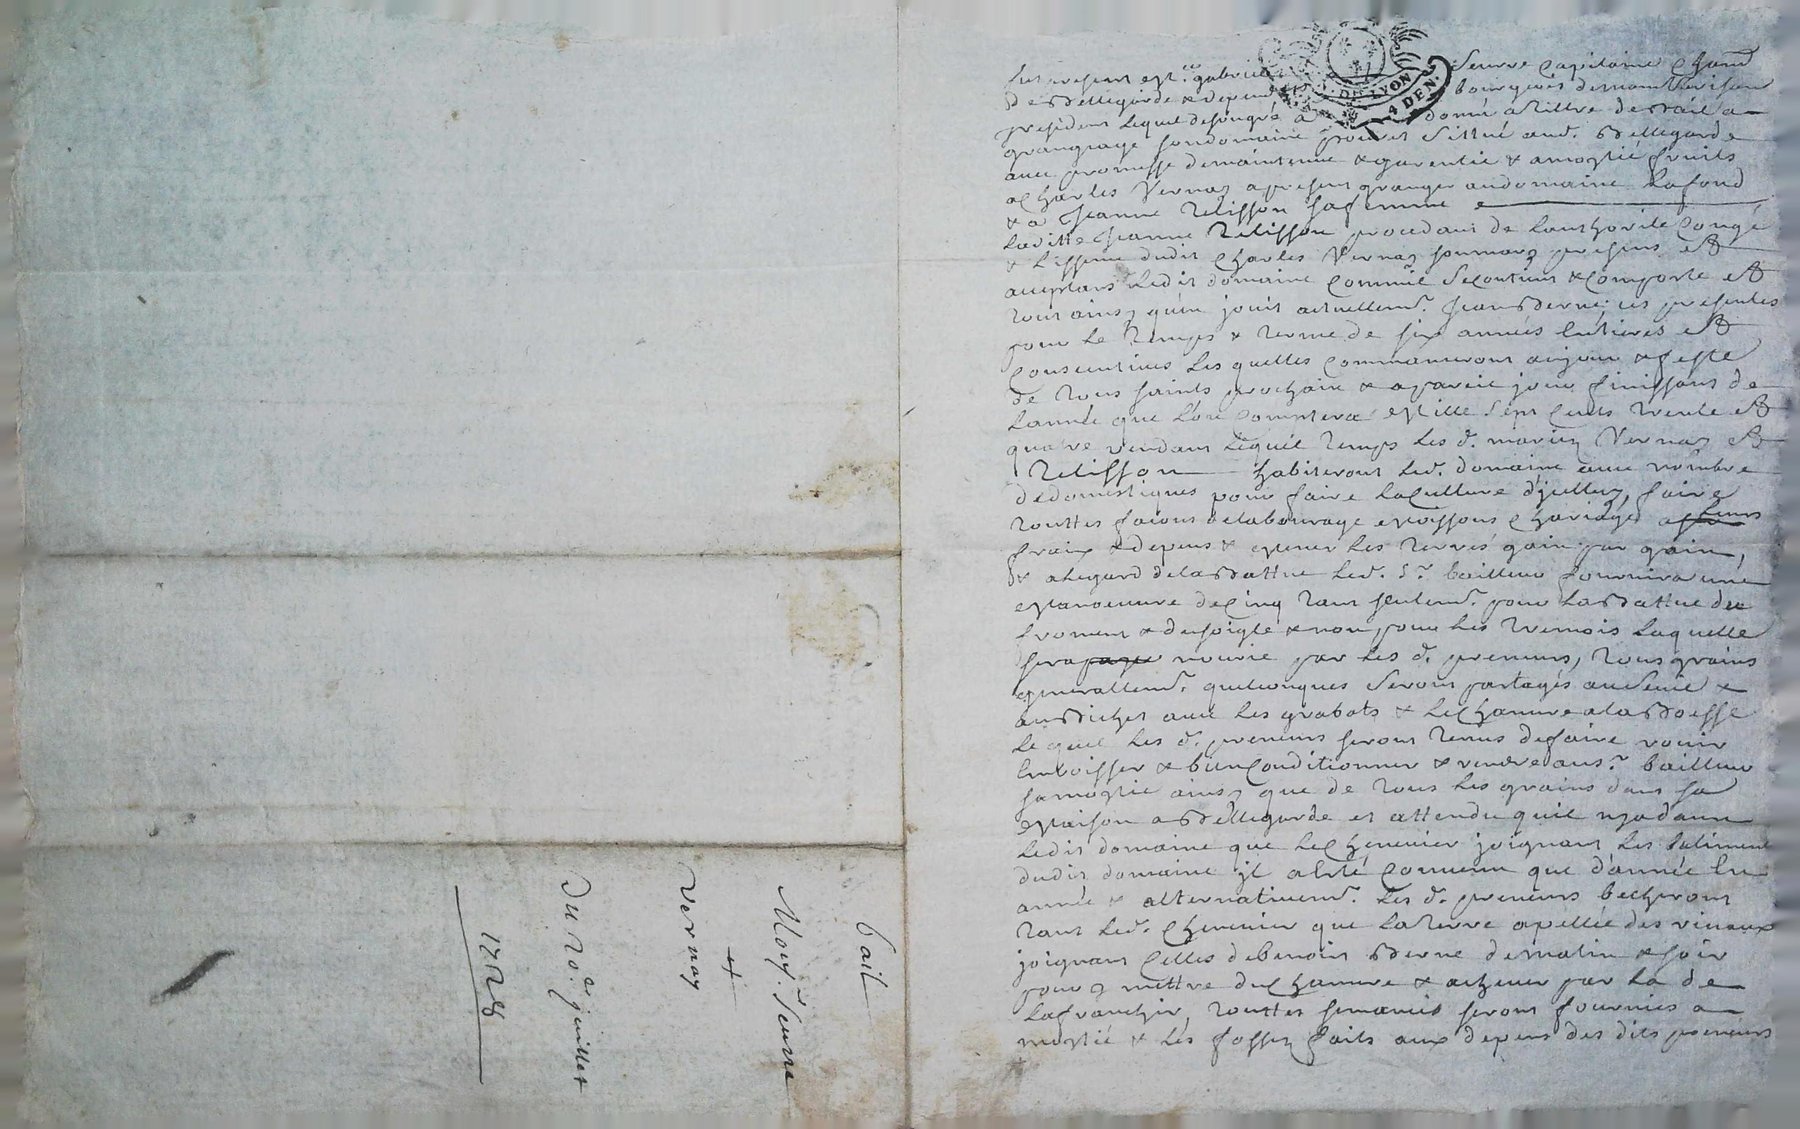 bail
Mons.r Seurre
&
Vernay
Du 20.e juillet
1728
DE LYON
4 DEN.
fut present s.r gabriel Seurre Capitaine Cham
De Bellegarde & depend bourgeois de
president lequel de son gré a donné a tittre de Bail a
grangeage son domaine situé aud. Bellegarde
avec promesse de maintenue & garentie & a moytié fruits
a Charles Vernay a present granger au domaine Lafond
& a Jeanne Relisson sa femme
Laditte Jeanne Relisson procedant de L'authorité Congé
& Licsense dudit Charles Vernay son mary presens et
acceptans Ledit domaine Comme Se Contient & Comporte et
tout ainsy qu'en jouit actuellem.t Jean Berne ces presentes
pour Le temps & terme de six années Entieres et
Consecutives Lesquelles Commanceront au jour & feste
de tous saints prochain & a pareil jour finissant de
Lannée que L'on Comptera Mille Sept Cents trente et
quatre pendant Lequel temps Les d. mariez Vernay et
Relisson habiteront Led. domaine avec nombre
de domestiques pour faire La Culture d'jcelluy, faire
touttes facons de labourage Moissons Chariages a leurs
fraix & depens & semer Les terres gain par gain,
& a Legard de la Batture Led. S.r bailleur fournira une
Manoeuvre de Cinq tant seulem.t pour La Batture du
froment & du soigle & non pour Les tremois Laquelle
sera nourie par Les d. preneurs, tous grains
generallem.t quelconques Seront partagés au Senie &
au Bichet avec Les grabots & Le Chanvre a la Boesse
Lequel Les d. preneurs seront tenus de faire rouir
Emboisser & bien Conditionner & rendre au s.r bailleur
sa moytié ainsy que de tous Les grains dans sa
Maison a Bellegarde et attendu quil n'y a dans
Ledit domaine que Le Chenevier joignant Les batiment
dudit domaine jl a Esté Convenu que d'année En
année & alternativem.t Les d. preneurs becheront
tant Led. Chenevier que La terre apellée des vivaux
joignant Celles de benoist Berne de matin & soir
pour y mettre du Chanvre & achever par La de
La franchir, touttes semances seront fournies a
moytié & Les fossez faits aux depens des dits preneurs